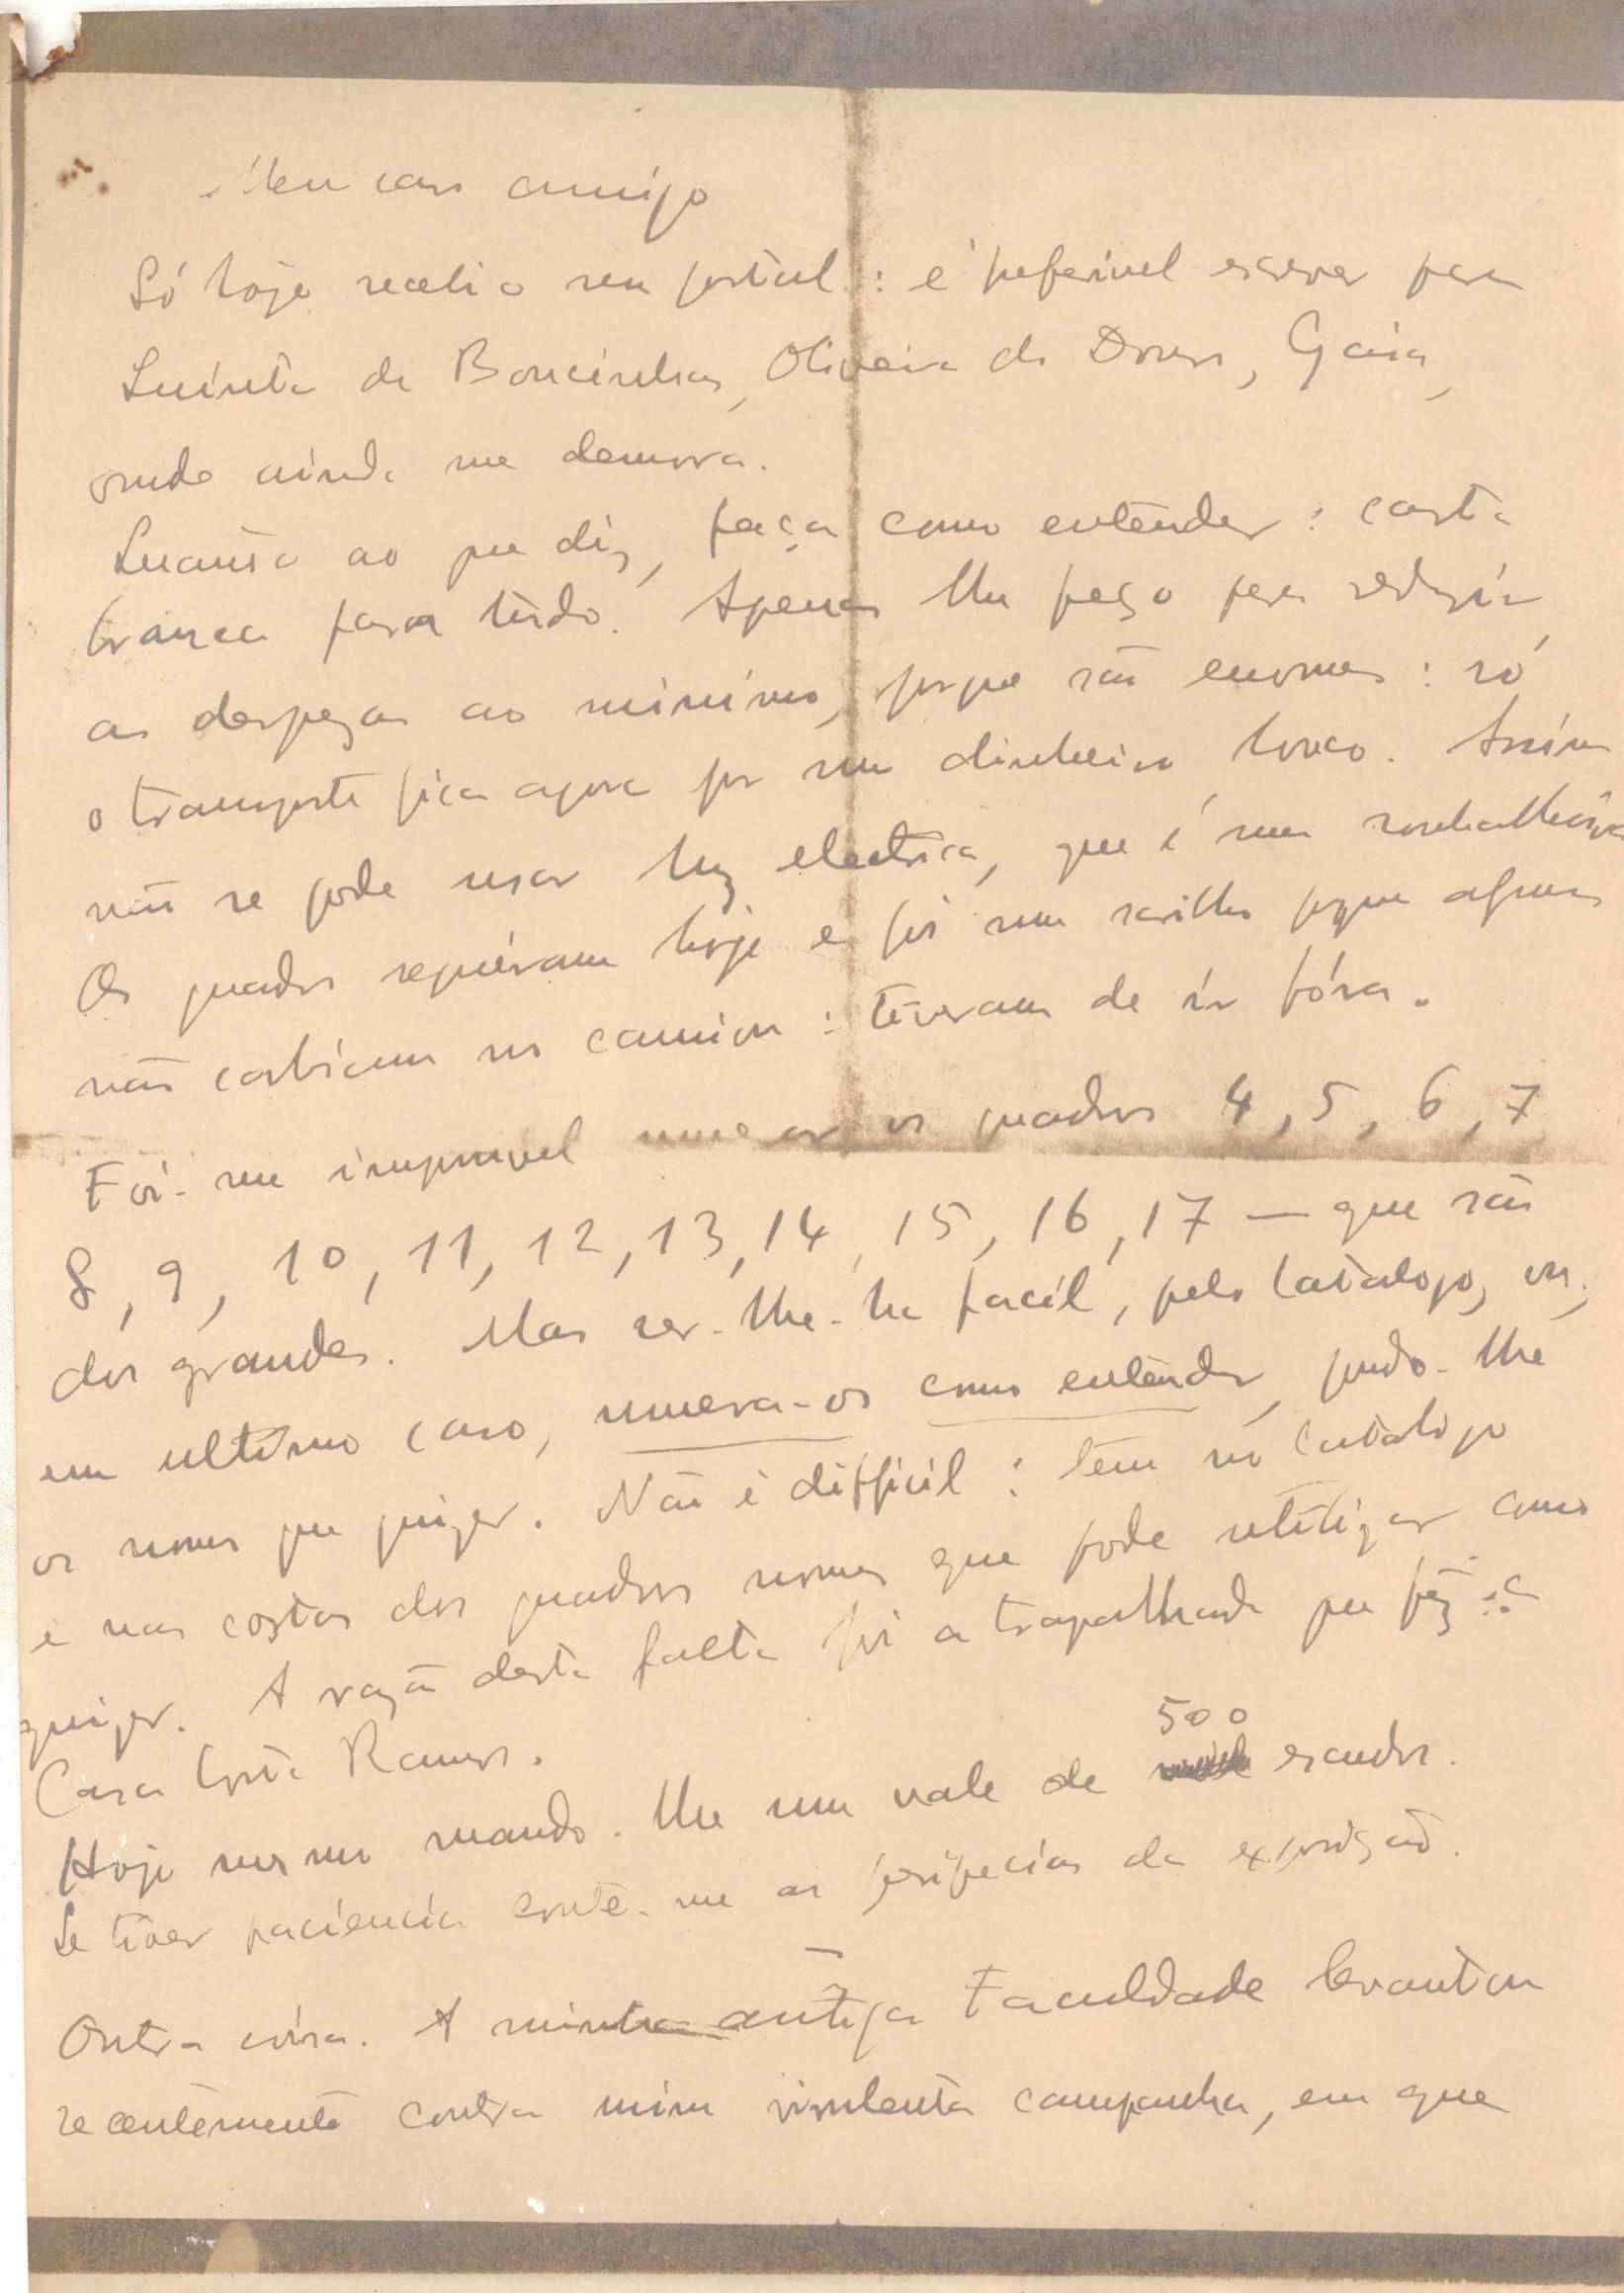 Meu caro amigo
Só hoje recebi o seu postal: é preferivel escrever para
Quinta de Boucinhas, Oliveira do Douro, Gaia,
onde ainda me demoro.
Quanto ao que diz, faça como entender: carta
branca para tudo. Apenas lhe peço para reduzir
as despezas ao minimo, porque são enormes: só
o transporte fica agora por um dinheiro louco. Assim
não se pode usar luz electrica, que é uma
Os quadros seguiram hoje e foi um sarilho porque alguns
não cabiam no camion: tiveram de ir fóra.
Foi-me impossivel numerar os quadros 4, 5, 6, 7
8, 9, 10, 11, 12, 13, 14, 15, 16, 17 — que são
dos grandes. Mas ser-lhe-ha facil, pelo catalogo, ou,
em ultimo caso, numera-os como entender, pondo-lhe
os nomes que quizer. Não é difficil: tem no catalogo
e nas costas dos quadros nomes que pode utilizar como
quizer. A razão desta falta foi a trapalhada que fez a
Casa Costa Ramos.
Hoje mesmo mando-lhe um vale de 500 escudos.
Se tiver paciencia conte-me as peripecias da exposição.
Outra coisa. A minha antiga Faculdade levantou
recentemente contra mim virulenta campanha, em que